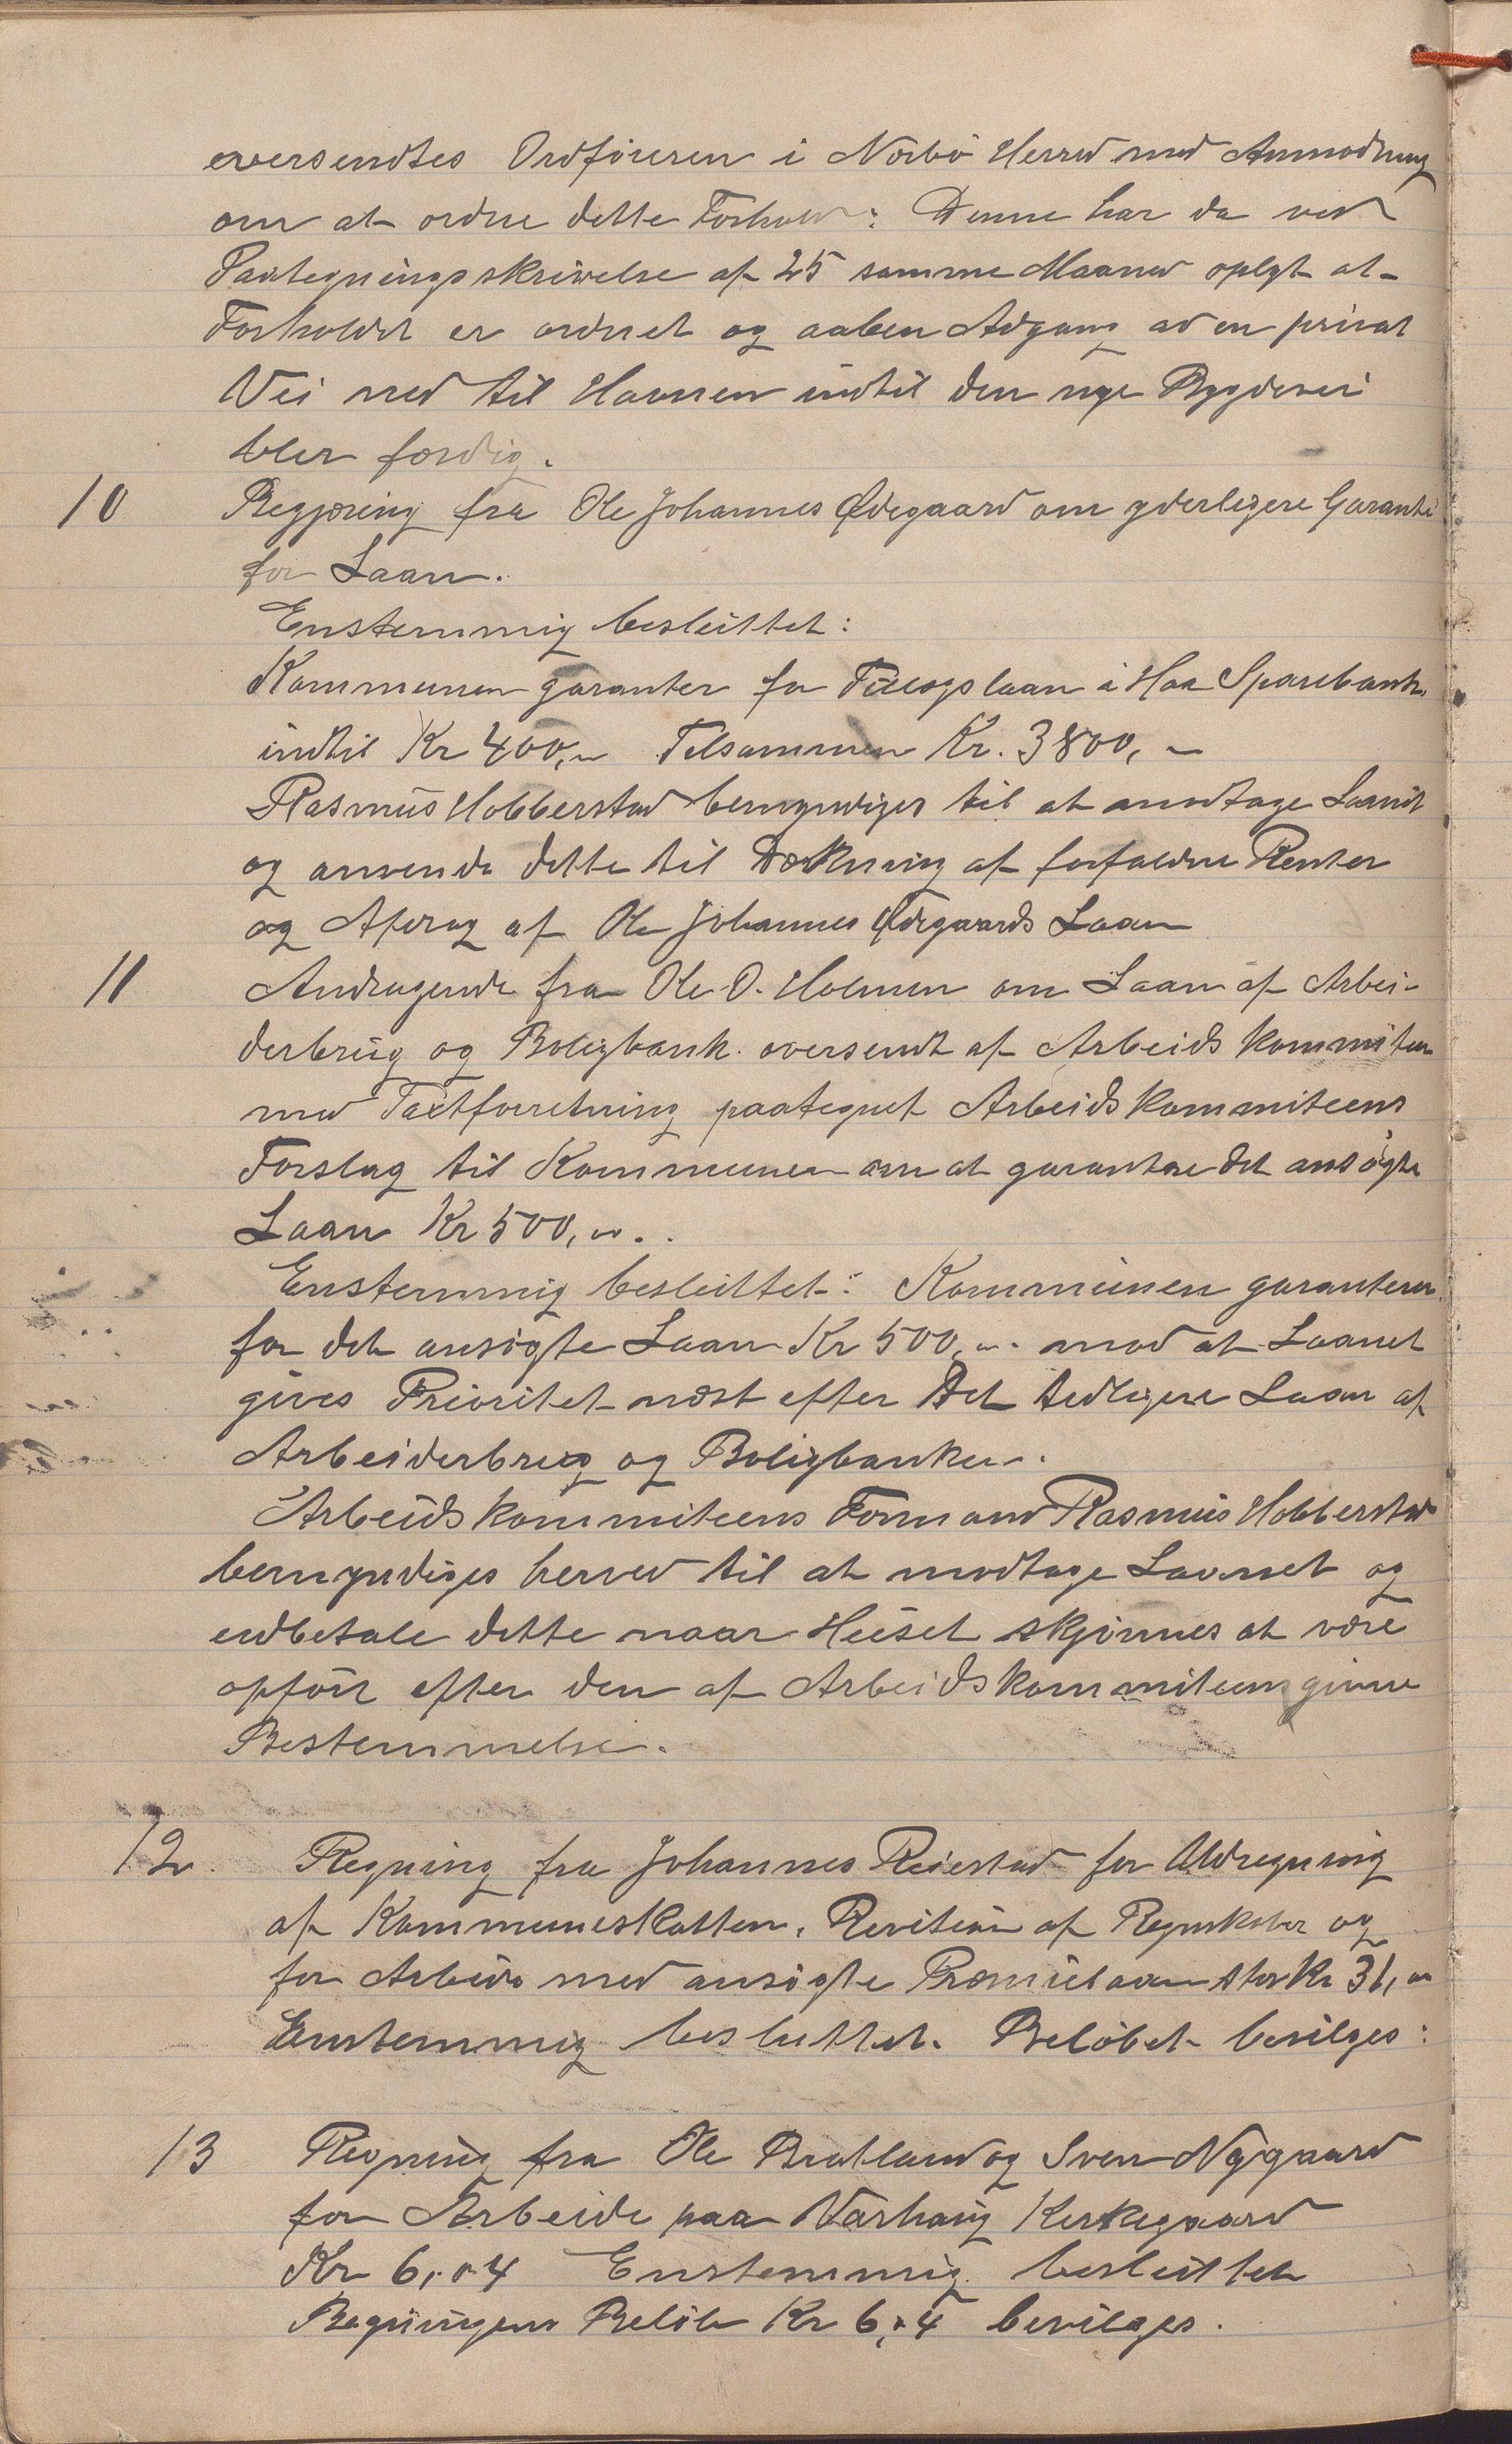 oversendtes Ordføreren i Nærbø Herred med Anmodning
om at ordne dette Forhold: Denne har da ved
Paategningsskrivelse af 25 samme Maaned oplyst at
Forholdet er ordnet og aaben Adgang ad en privat
Vei ned til Havnen indtil den nye Bygdevei
bler færdig.
10 Begjæring fra Ole Johannes Ødegaard om yderligere Garanti
for Laan.
Enstemmig besluttet:
Kommunen garanter for Tillægslaan i Haa Sparebank
indtil Kr 400,00 Tilsammen Kr. 3800,00
Rasmus Hobberstad bemyndiges til at modtage Laanet
og anvende dette til Dækning af forfaldne Renter
og Afdrag af Ole Johannes Ødegaards Laan
11 Andragende fra Ole O. Holmen om Laan af Arbei-
derbrug og Boligbank oversendt af Arbeidskommiteen
med Taxtforretning paategnet Arbeidskommiteens
Forslag til Kommunen om at garantere det ansøgte
Laan Kr 500,00.
Enstemmig besluttet: Kommunen garanterer
for det ansøgte Laan Kr 500,00 mod at Laanet
gives Prioritet næst efter det tidligere Laan af
Arbeiderbrug og Boligbanken.
Arbeidskommiteens Formand Rasmus Hobberstad
bemyndiges herved til at modtage Laanet og
udbetale dette naar Huset skjønnes at være
opført efter den af Arbeidskommiteens givne
Bestemmelse.
12. Regning fra Johannes Reiestad for Udregning
af Kommuneskatten, Revision af Regnskaber og
for Arbeide med ansøgte Præmielaan stor Kr 31,00
Enstemmig besluttet. Beløbet bevilges:
13 Regning fra Ole Bratland og Sven Nygaard
for Arbeide paa Varhaug Kirkegaard
Kr 6,04 Enstemmig besluttet
Regningens Beløb Kr 6,04 bevilges.